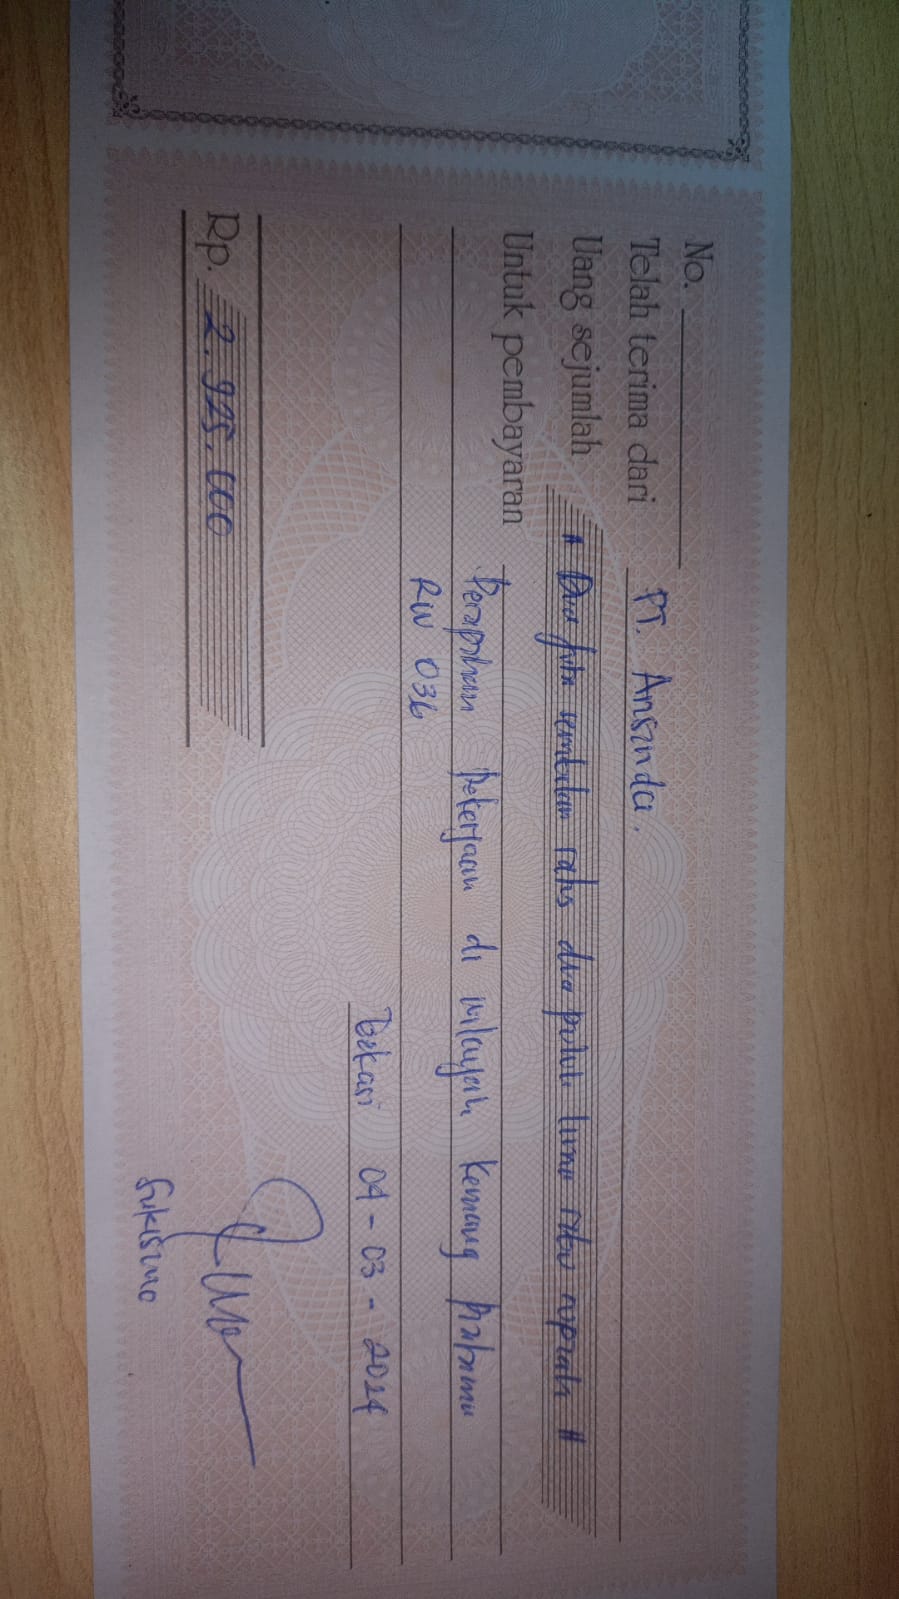 No.
Telah terima dari PT. Ansinda.
Uang sejumlah # Dua juta sembilan ratus dua puluh lima ribu rupiah #
Untuk pembayaran
Perapihan Pekerjaan di wilayah Kemang Pratama
RW 036
Bekasi 04 - 03 - 2024
Rp. 2.925.000
Sukisno